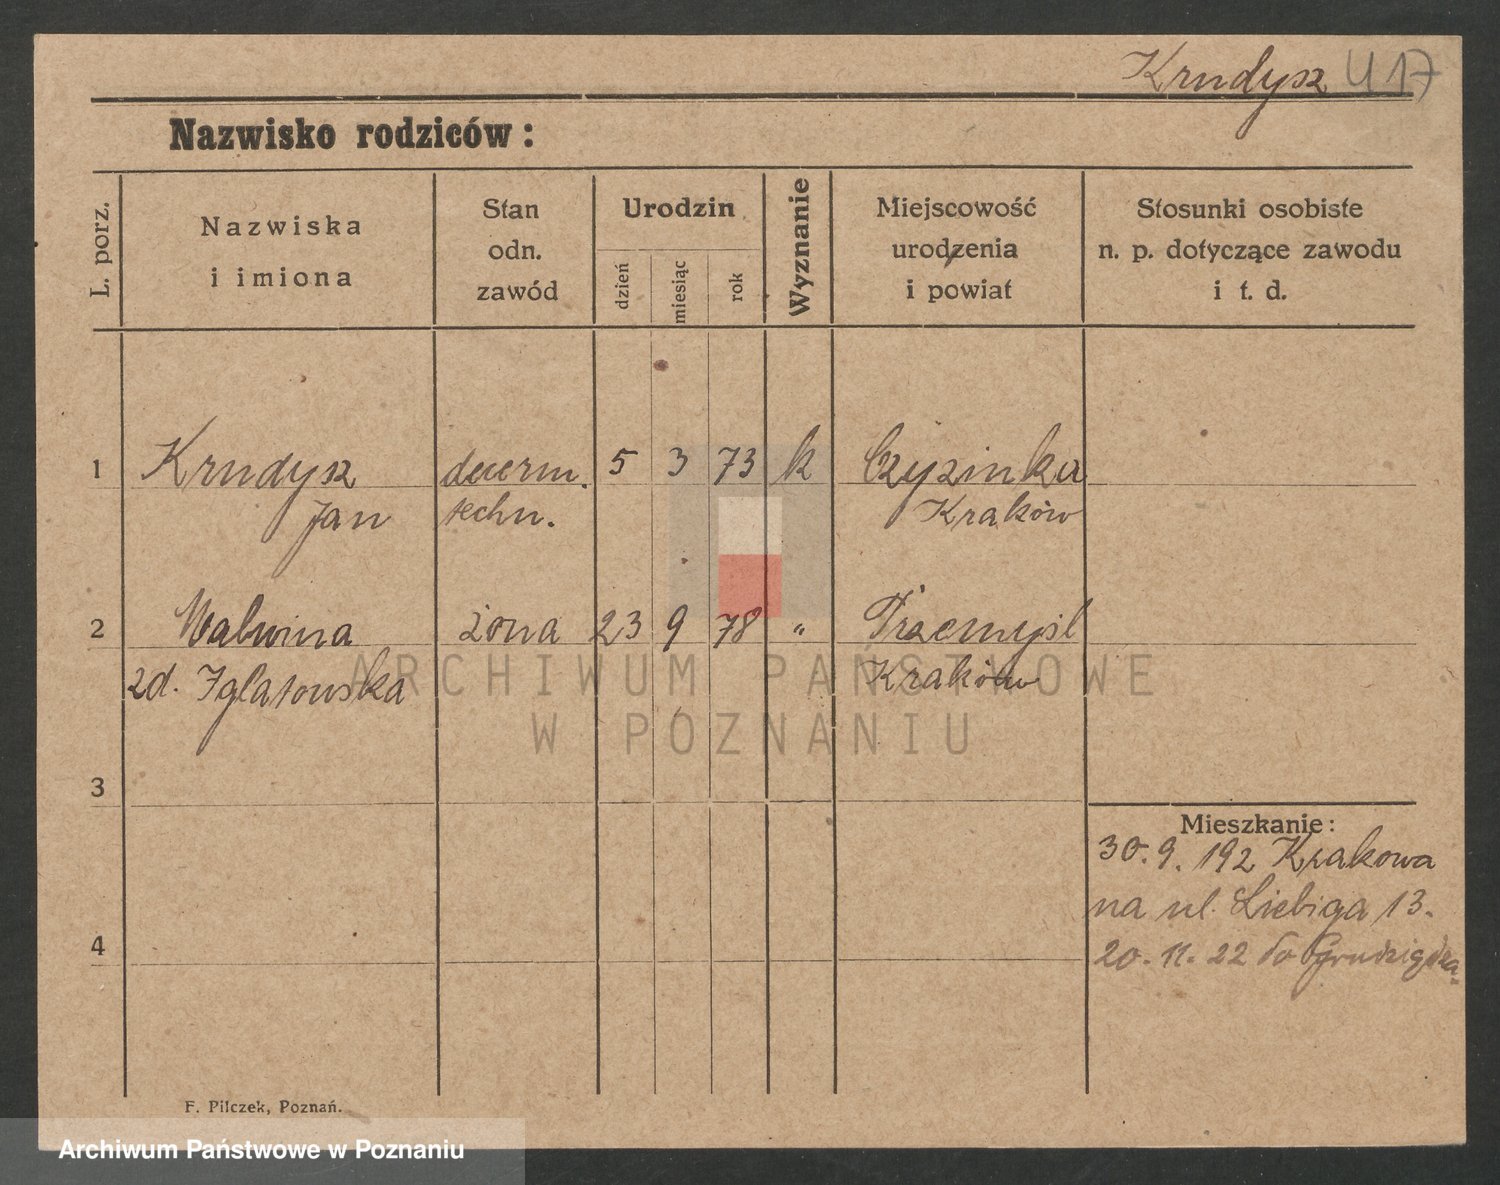 Krudysz 417
Nazwisko rodziców:
L. porz.
Nazwiska
i imiona
Stan
odn.
zawód
Urodzin
dzień
miesiąc
rok
Wyznanie
Miejscowość
urodzenia
i powiat
Stosunki osobiste
n. p. dotyczące zawodu
i t. d.
1 Krudysz 5 3 73 k Czyzinka
Jan techn. Kraków
2 Malwina żona 23 9 78 " Przemyśl
zd. Iglatowska Kraków
ARCHIWUM PAŃSTWOWE
W POZNANIU
3
Mieszkanie:
30.9.192 Krakowa
na ul. Liebiga 13.
4
20.11.22 do Grudziądza.
F. Pilczek, Poznań.
Archiwum Państwowe w Poznaniu